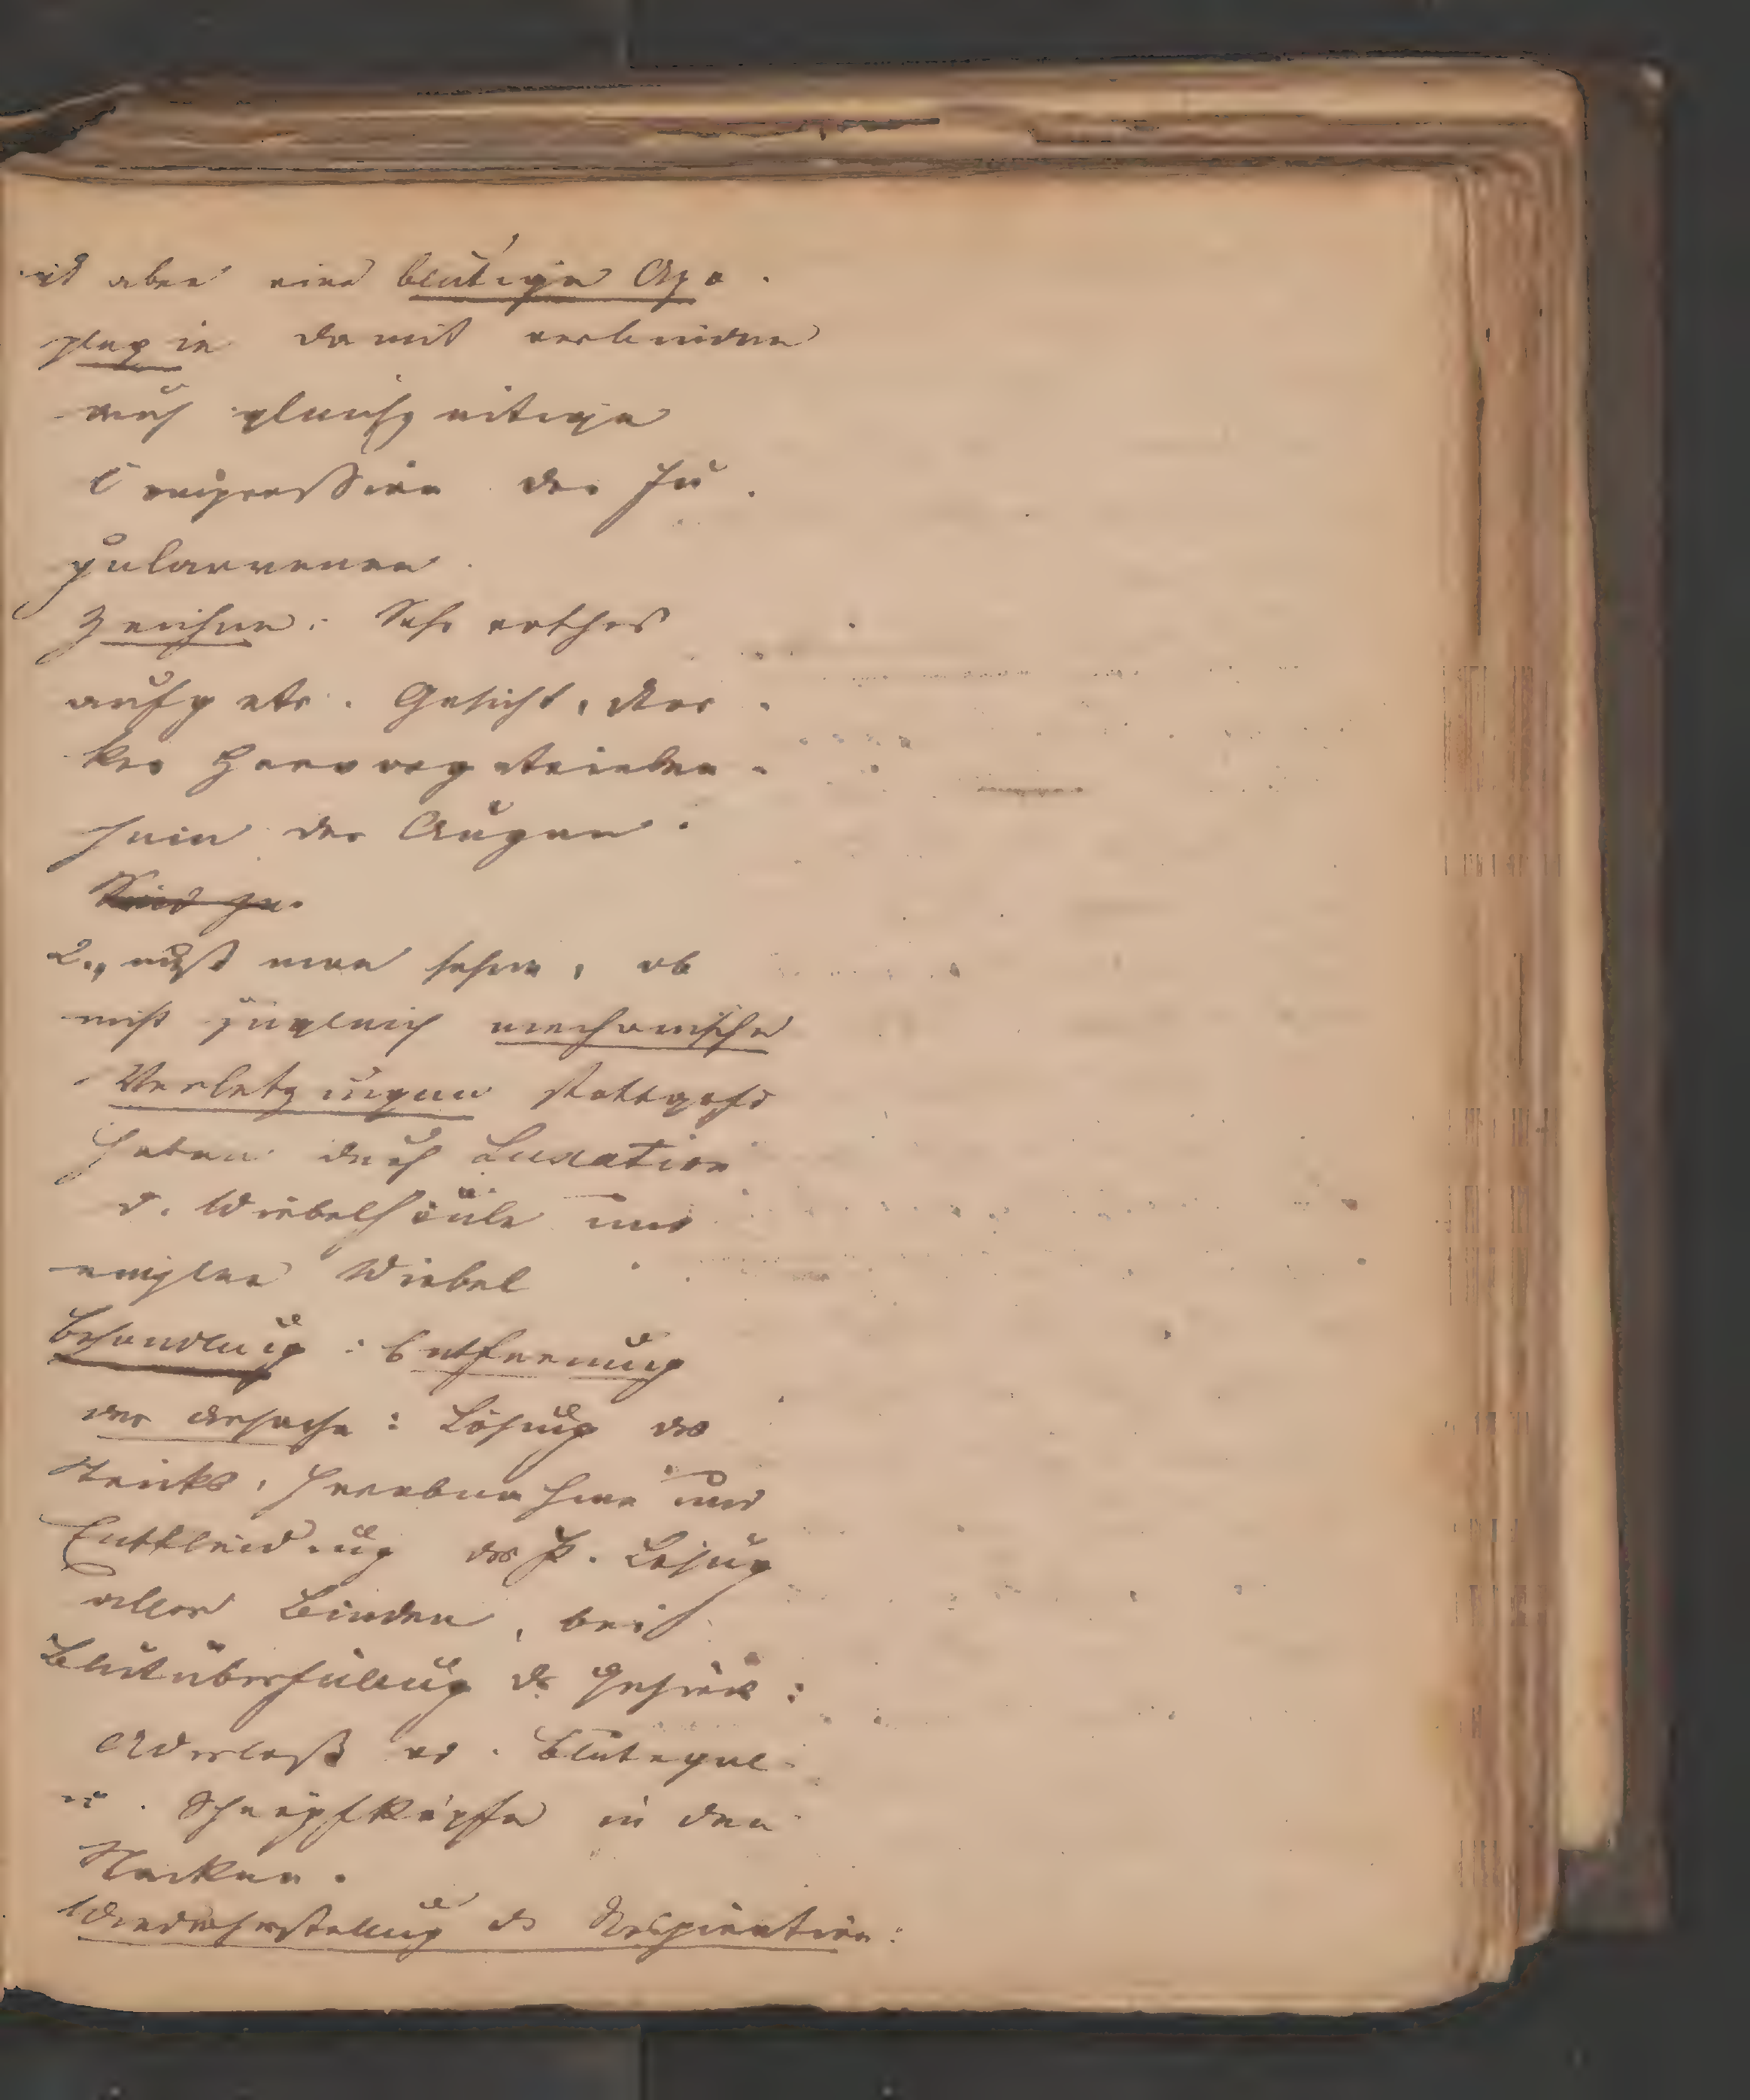 ist aber eine blutige Apo-
plexie damit verbunden
auch gleichzeitige
Compression der Ju-
gularvenen.
Zeichen: Sehr rothes
aufgetr. Gesicht, star-
kes Hervorgetrieben-
sein der Augen.
Sind ge-
2., muß man sehen, ob
nicht zugleich mechanische
Verletzungen stattgefd
haben durch Luxation
d. Wirbelsäule und
Wirbel
Behandlung: Entfernung
der Ursache: Lösung des
Stricks, Herabnahme und
Entkleidung des P. Lösung
aller Binden, bei
Blutüberfüllung des Gehirns:
Aderlaß od. Blutegel
u. Schröpfköpfe in den
Nacken.
Wiederherstellung der Respiration: